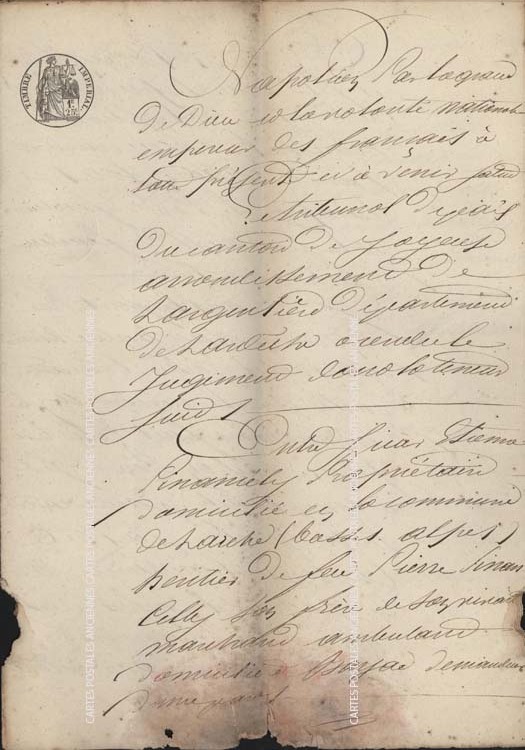 TIMBRE IMPERIAL
Napoléon Par la grace
de Dieu et la volonté nationale
empereur des français à
tous présents et à venir salut
Le tribunal de paix
du canton de Joyeuse
arrondissement de
Largentière département
de Lardèche a rendu le
Jugement dont la teneur
suit
Entre Sieur Etienne
propriétaire
domicilié en la commune
de Larche (basses alpes)
héritier de feu Pierre
son frère de son vivant
marchand ambulant
domicilié demandeur
CARTES POSTALES ANCIENNES CARTES POSTALES ANCIENNES CARTES POSTALES ANCIENNES
CARTES POSTALES ANCIENNES CARTES POSTALES ANCIENNES CARTES POSTALES ANCIENNES